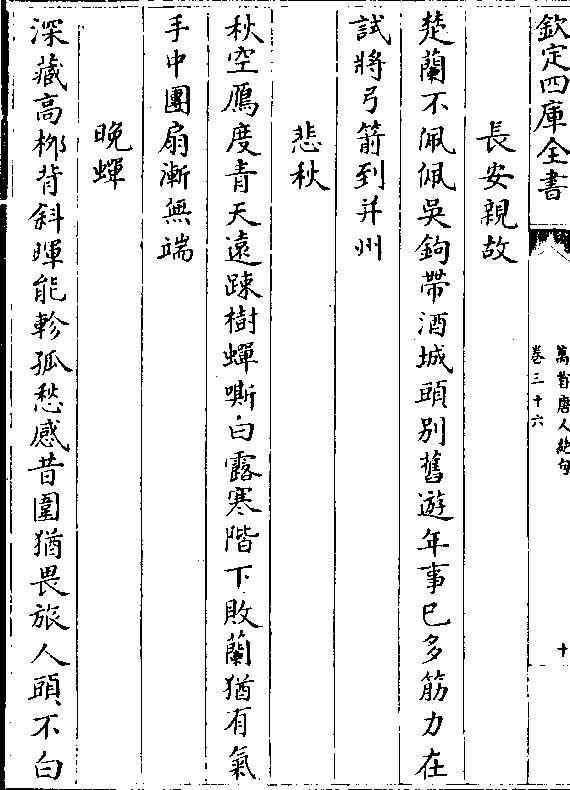 欽定四庫全書
萬首唐人絶句
卷三十六
十
長安親故
楚蘭不佩佩吳鉤帶酒城頭别舊遊年事已多筋力在
試將弓箭到并州
悲秋
秋空鴈度青天逺踈樹蟬嘶白露寒階下敗蘭猶有氣
手中團扇漸無端
晚蟬
深藏高栁背斜暉能軫孤愁感昔圍猶畏旅人頭不白